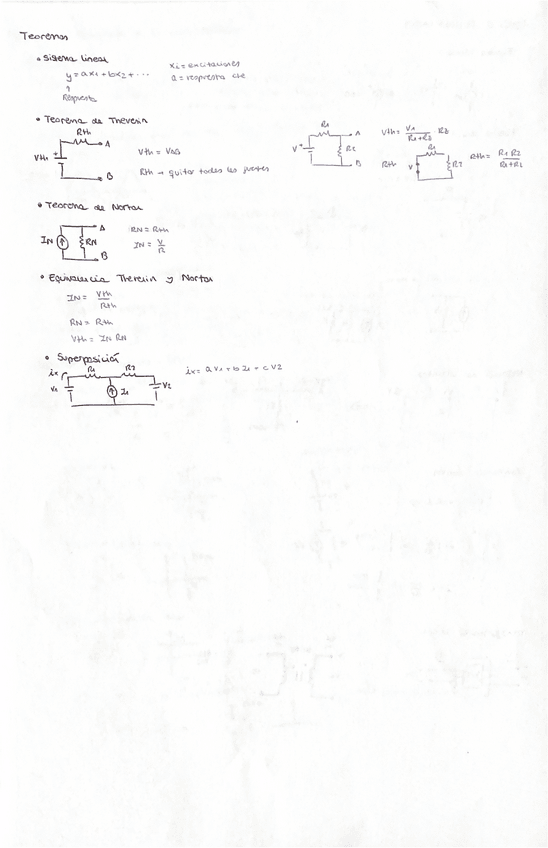 Teoremas
• Sistema lineal
y = ax1 + bx2 + ...
xi = excitaciones
a = respuesta cte
↑
Respuesta
• Teorema de Thevenin
Rth
A
Vth
+
B
Vth = VAB
Rth → quitar todas las fuentes
R1
A
V
+
R2
B
Vth = V1 / (R1+R2) R2
Rth
R1
V
R2
Rth = R1 R2 / (R1+R2)
• Teorema de Norton
A
IN
RN
B
RN = Rth
IN = V / R
• Equivalencia Thevenin y Norton
IN = Vth / Rth
RN = Rth
Vth = IN RN
• Superposición
ix
R1
R2
V1
I1
V2
ix = a V1 + b I1 + c V2